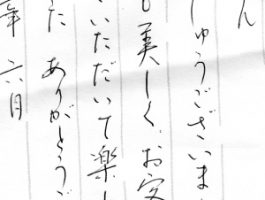 ん
しゅうございま
も美しく、お
いただいて楽し
た ありがとうご
年 六月